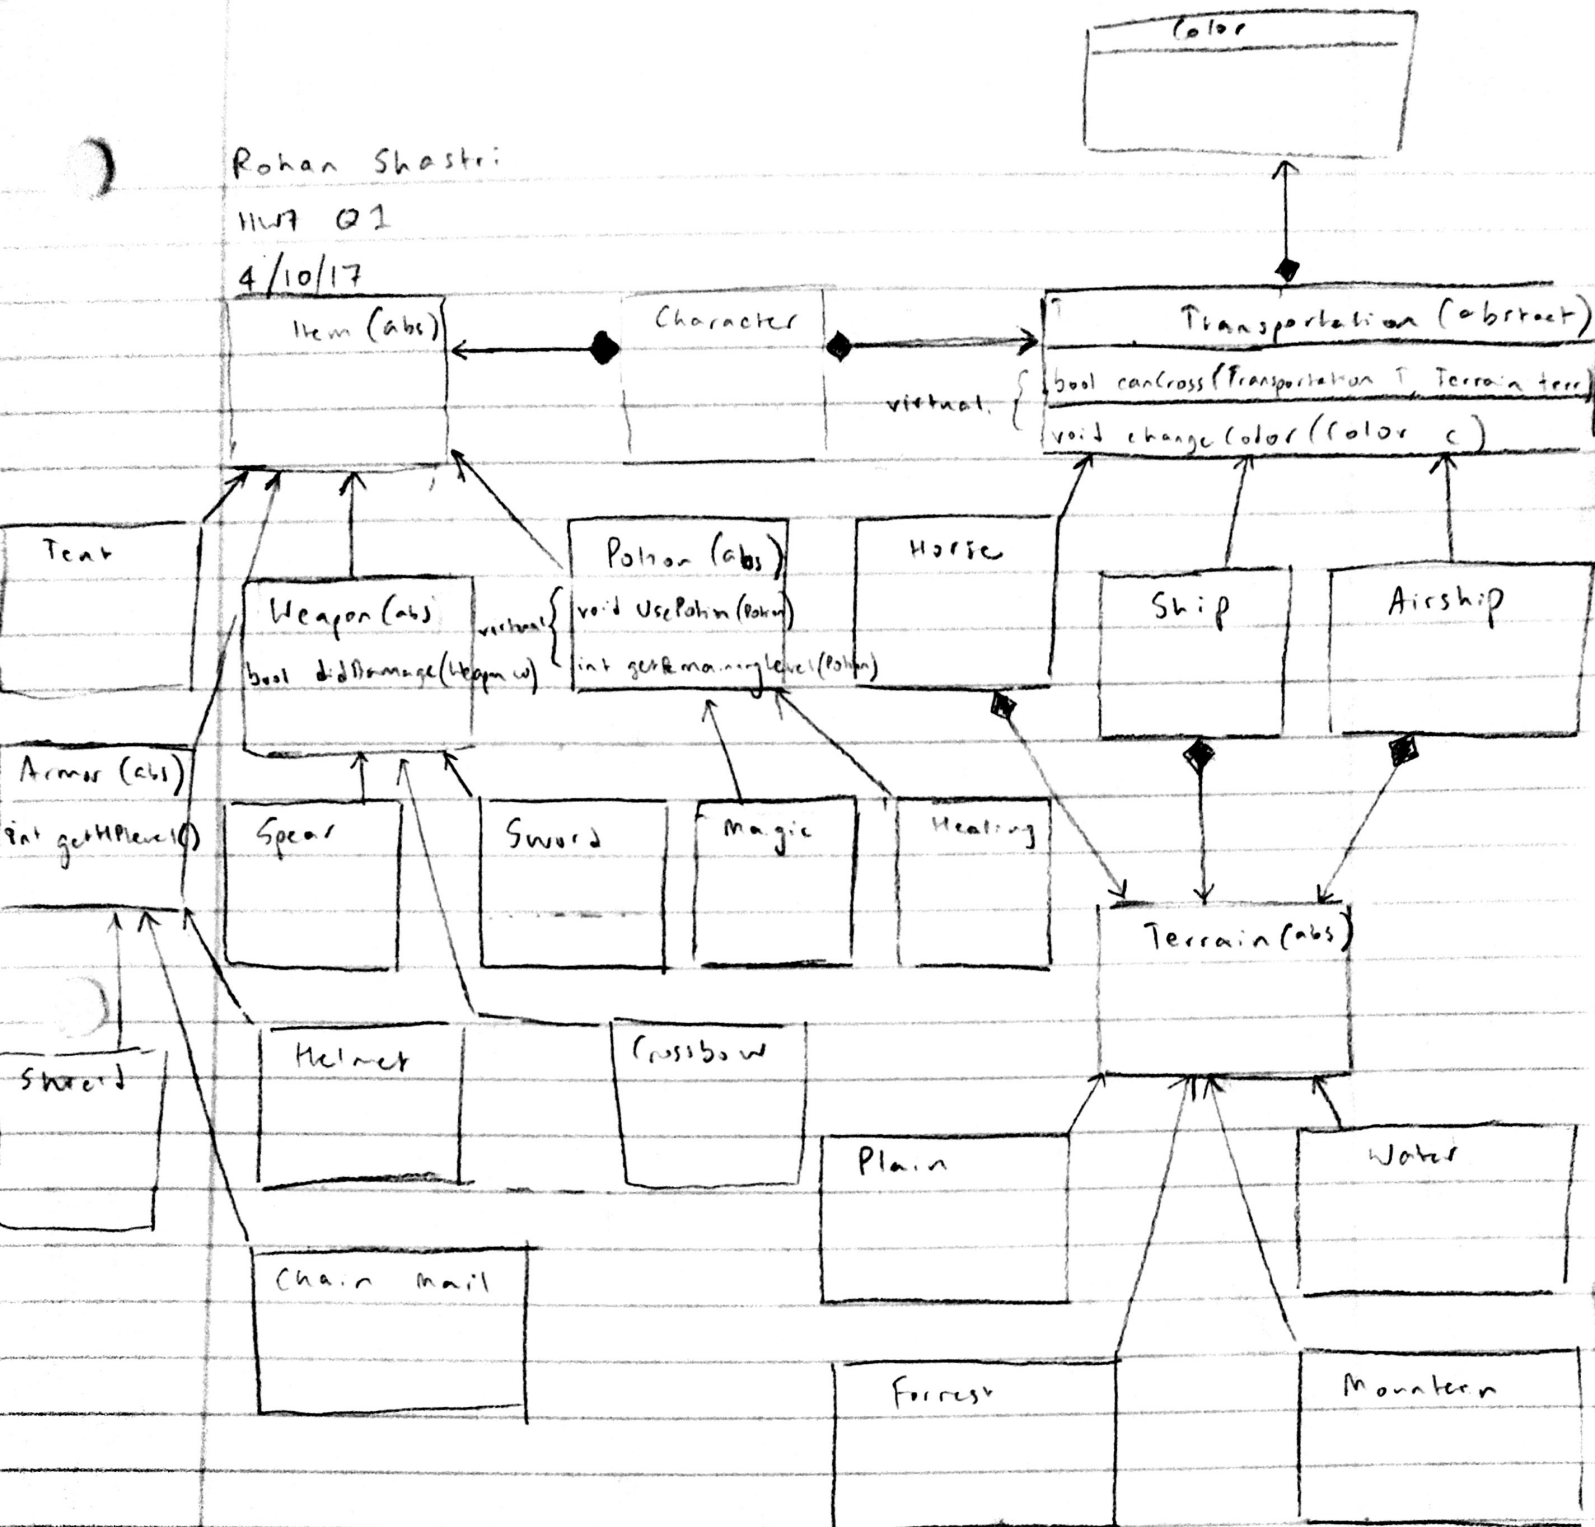 Color
Rohan Shastri
HW7 Q1
4/10/17
Item (abs)
Character
Transportation (abstract)
virtual
bool canCross(Transportation T, Terrain terr)
void changeColor(Color c)
Tent
Weapon (abs)
bool didDamage(Weapon w)
virtual
Potion (abs)
void UsePotion(Potion)
int getRemainingLevel(Potion)
Horse
Ship
Airship
Armor (abs)
int getHPlevel()
Spear
Sword
Magic
Healing
Terrain (abs)
Sheild
Helmet
Crossbow
Plain
Water
Chain Mail
Forrest
Mountain